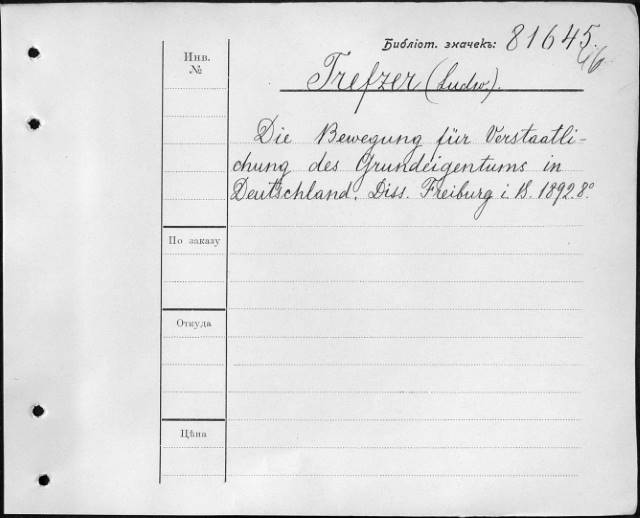 Библіот. значекъ: 81645.
46
Инв.
№
Trefzer (Ludw.).
Die Bewegung für Verstaatli-
chung des Grundeigentums in
Deutschland. Diss. Freiburg i. B. 1892. 8°
По заказу
Откуда
Цѣна